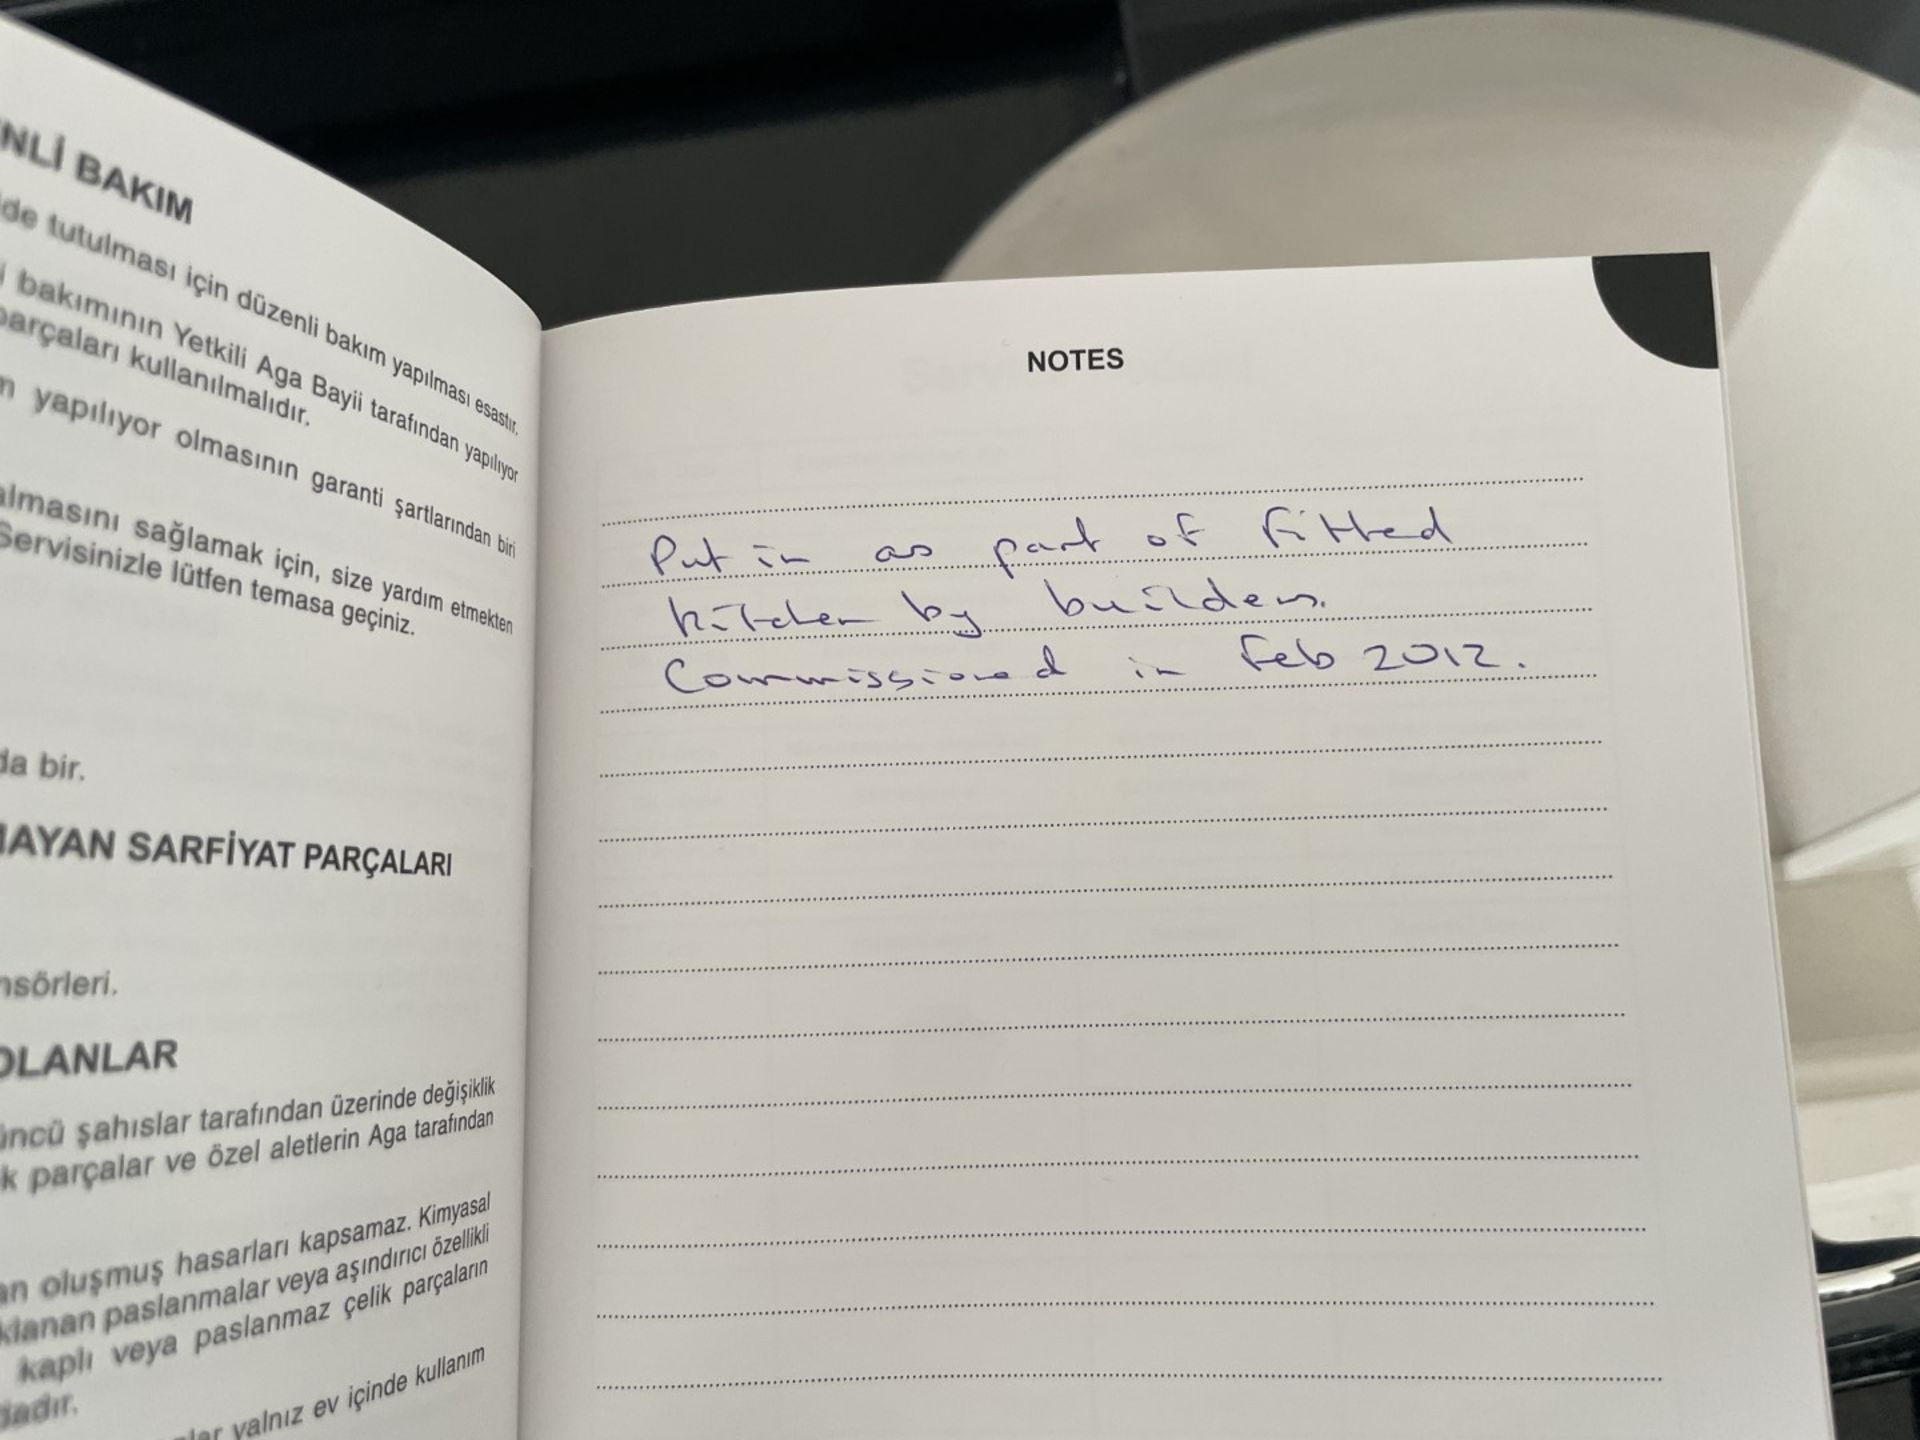 BAKIM
de tutulması için düzenli bakım yapılması esastır.
bakımının Yetkili Aga Bayii tarafından yapılıyor
parçaları kullanılmalıdır.
yapılıyor olmasının garanti şartlarından biri
almasını sağlamak için, size yardım etmekten
Servisinizle lütfen temasa geçiniz.
da bir.
MAYAN SARFİYAT PARÇALARI
nsörleri.
OLANLAR
üncü şahıslar tarafından üzerinde değişiklik
k parçalar ve özel aletlerin Aga tarafından
an oluşmuş hasarları kapsamaz. Kimyasal
klanan paslanmalar veya aşındırıcı özellikli
kaplı veya paslanmaz çelik parçaların
dadır.
lar yalnız ev içinde kullanım
NOTES
Put in as part of fitted
kitchen by builders.
Commissioned in Feb 2012.